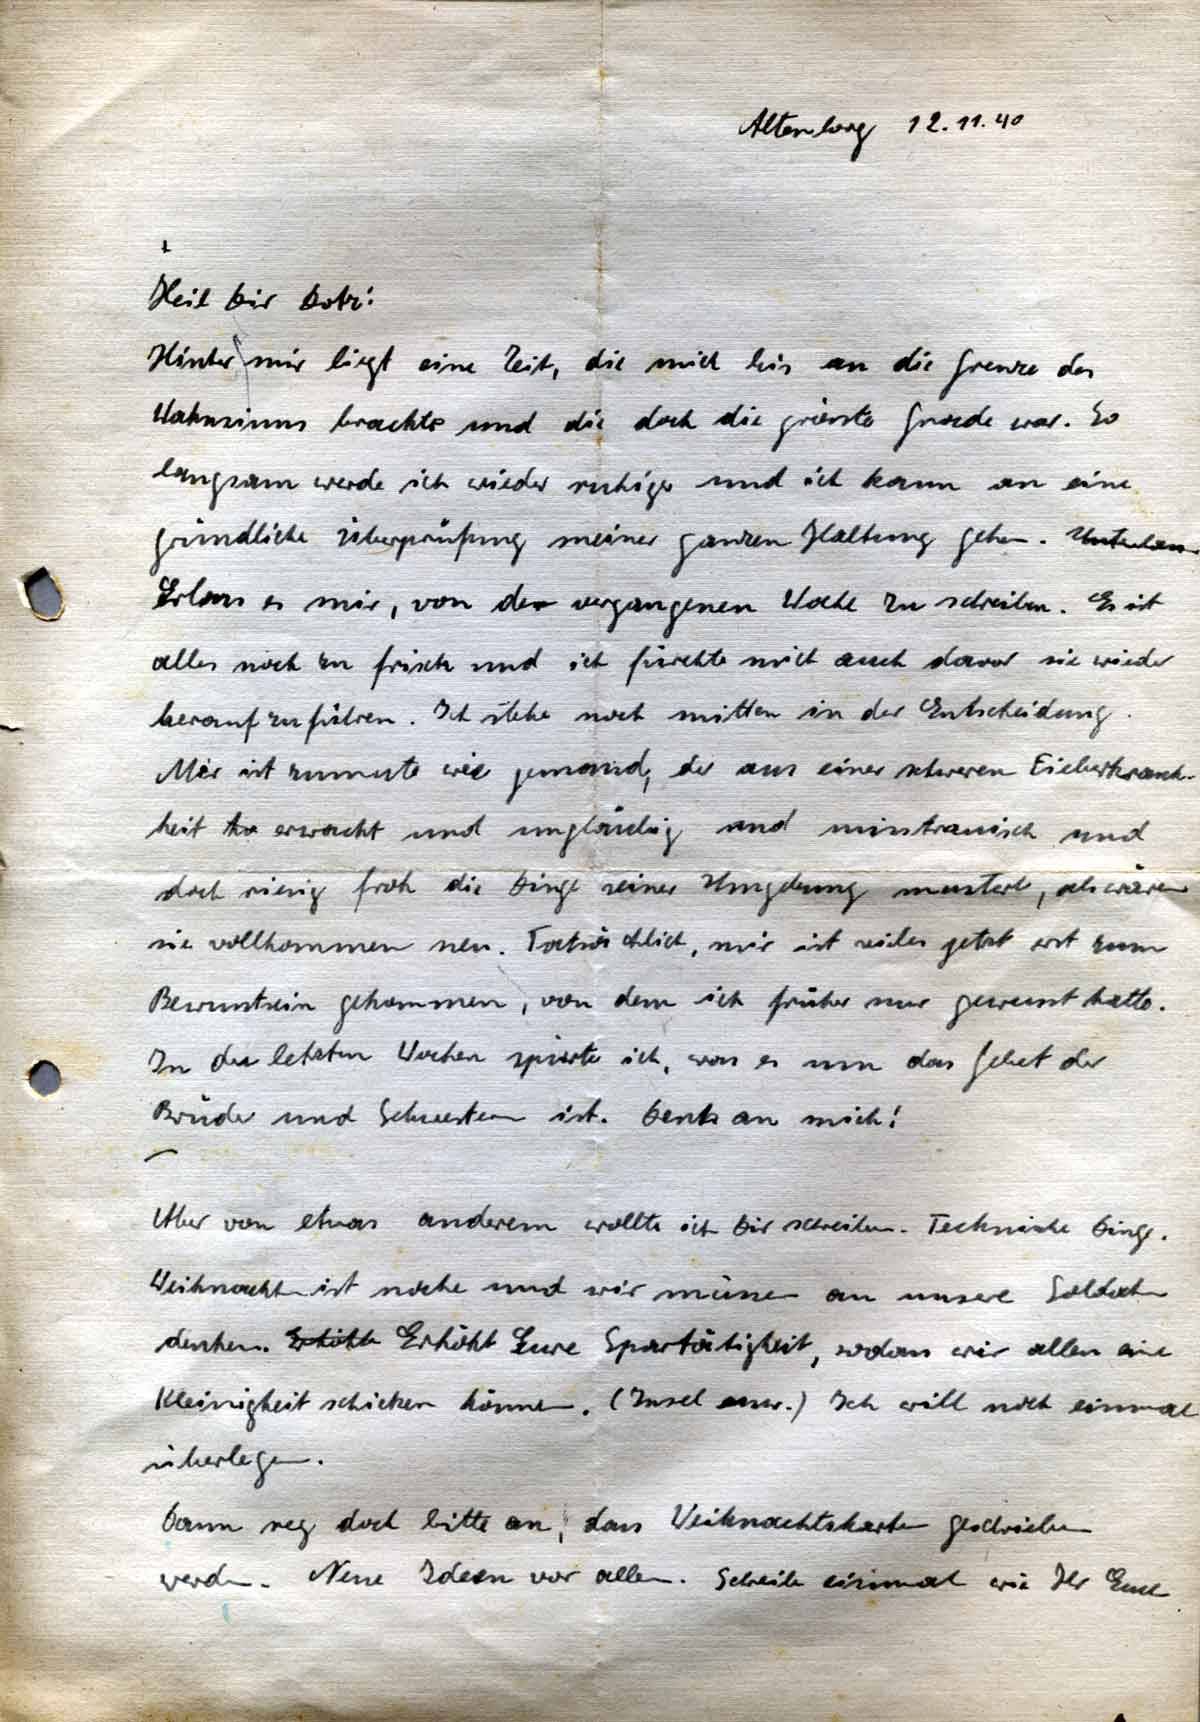 Altenburg 12.11.40
Heil Dir
Hinter mir liegt eine Zeit, die mich bis an die Grenze des
Wahnsinns brachte und die doch die grösste Gnade war. So
langsam werde ich wieder ruhiger und ich kann an eine
gründliche Überprüfung meiner ganzen Haltung gehen.
Erlass es mir, von der vergangenen Woche zu schreiben. Es ist
alles noch zu frisch und ich fürchte mich auch davor sie wieder
heraufzuführen. Ich stehe noch mitten in der Entscheidung.
Mir ist zumute wie jemand, der aus einer schweren Fieberkrank-
heit erwacht und ungläubig und misstrauisch und
doch riesig froh die Dinge seiner Umgebung mustert, als wären
sie vollkommen neu. Tatsächlich, mir ist vieles jetzt erst zum
Bewusstsein gekommen, von dem ich früher nur gewusst hatte.
In den letzten Wochen spürte ich, was es um das Gebet der
Brüder und Schwestern ist. Denk an mich!
Aber von etwas anderem wollte ich Dir schreiben. Technische Dinge.
Weihnachten ist nahe und wir müssen an unsere Soldaten
denken. Erhöht Eure Spartätigkeit, sodass wir allen eine
Kleinigkeit schicken können. (Insel usw.) Ich will noch einmal
überlegen.
Dann reg doch bitte an, dass Weihnachtskarten geschrieben
werden. Neue Ideen vor allem. Schreib einmal wie Ihr Euch